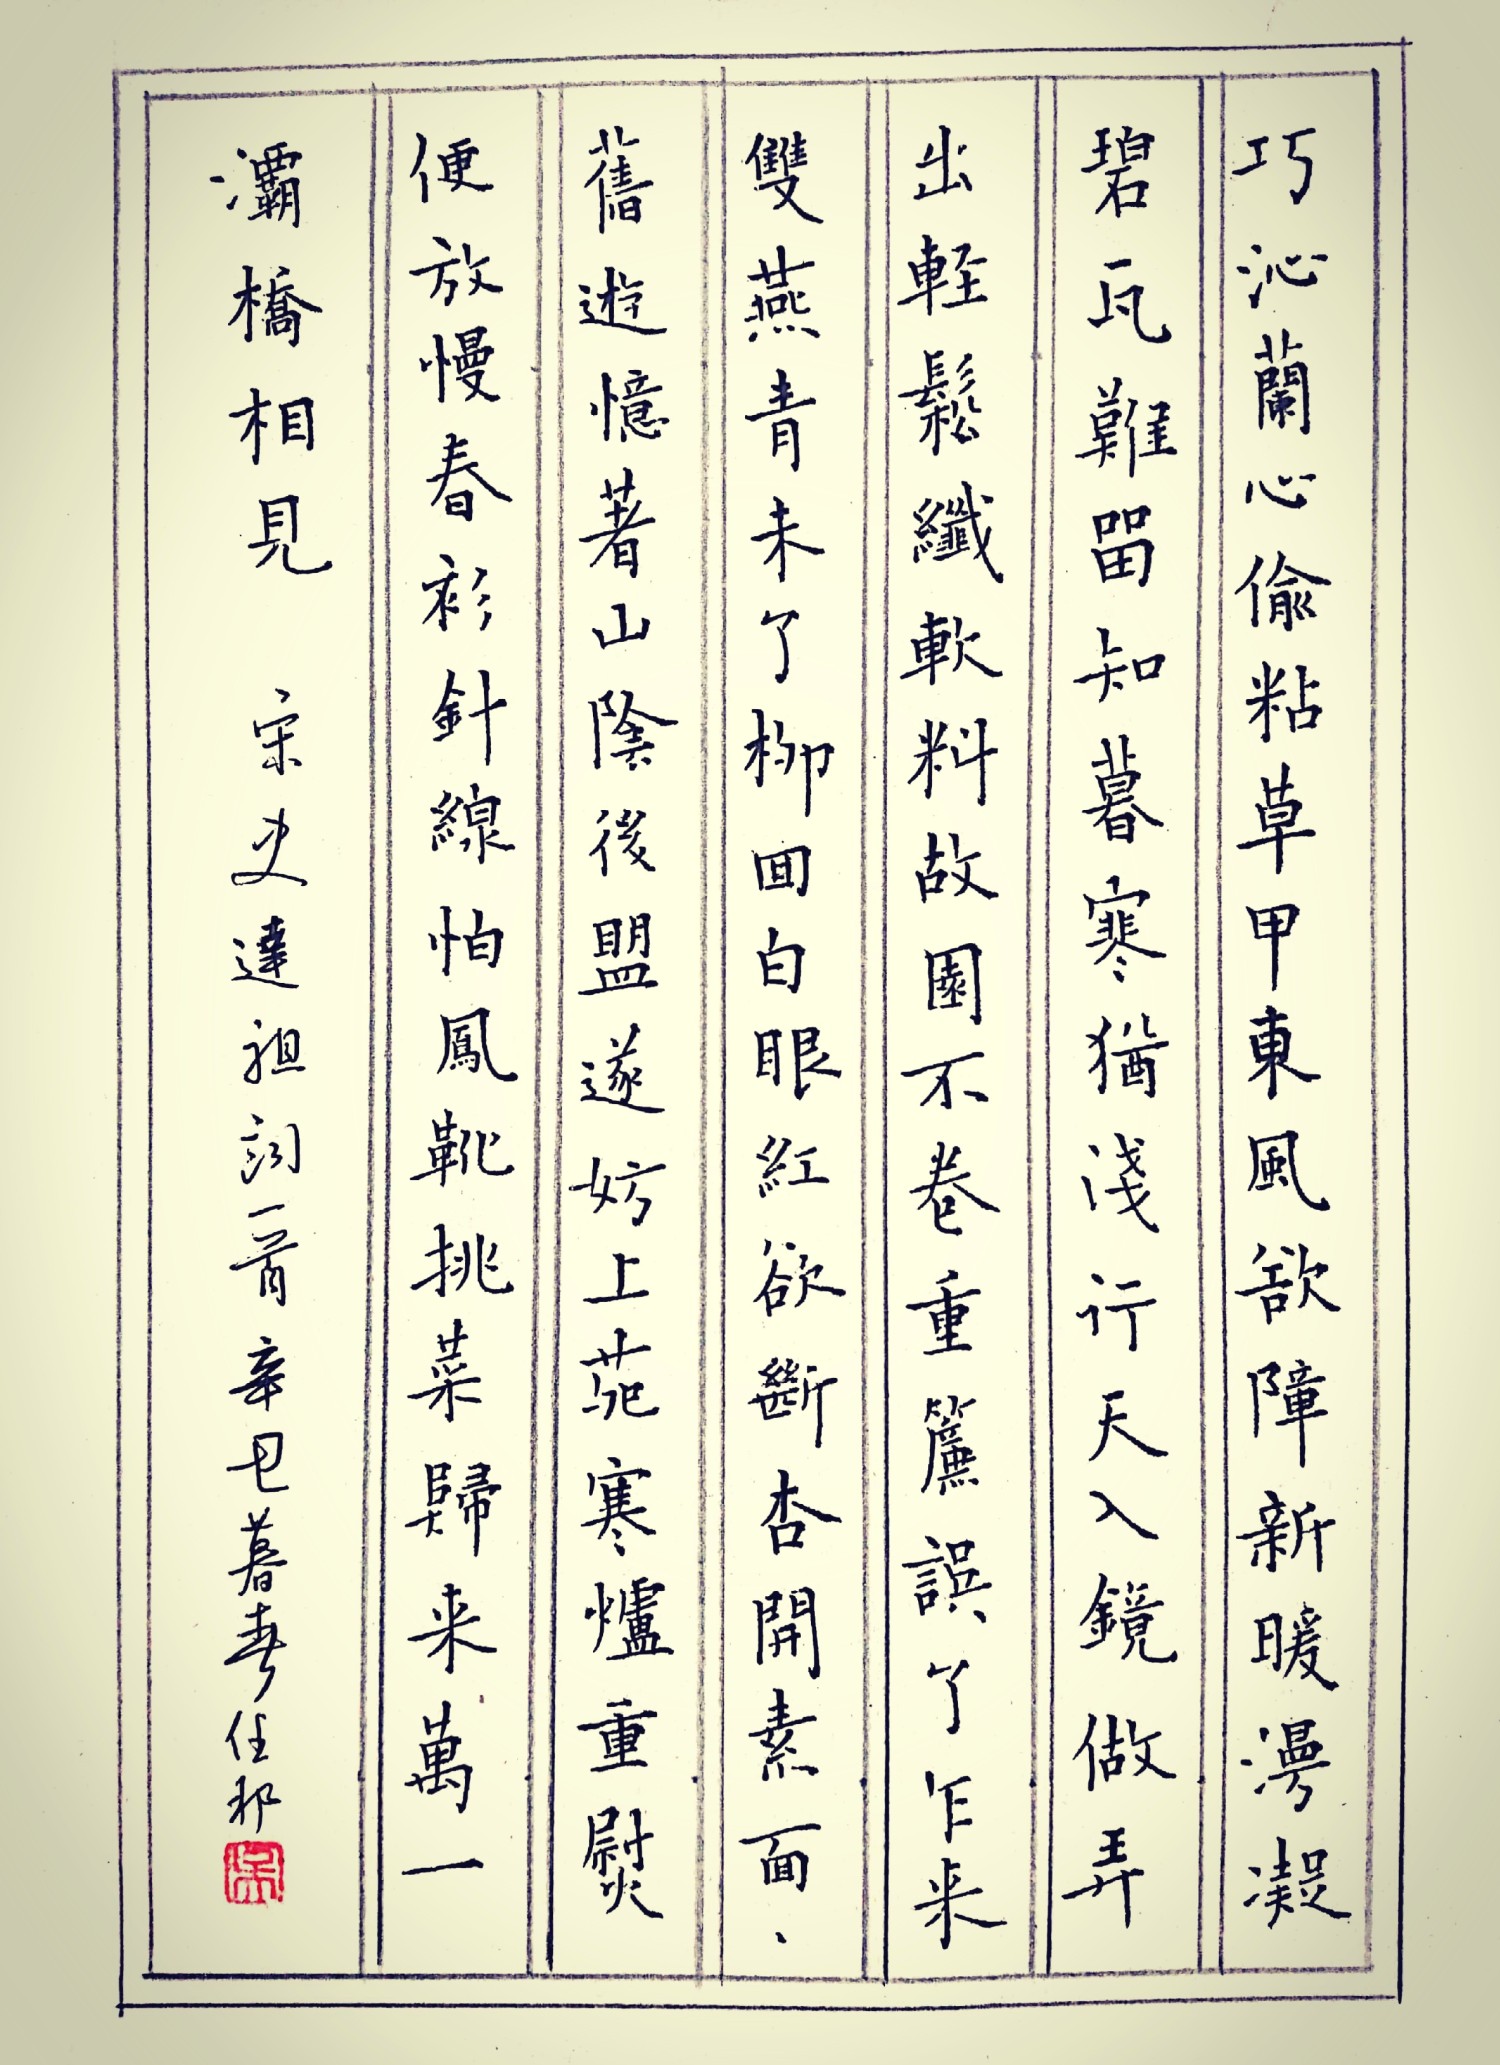 巧沁蘭心偷粘草甲東風欲障新暖漫凝
碧瓦難留知暮寒猶淺行天入鏡做弄
出輕鬆纖軟料故園不卷重簾誤了乍来
雙燕青未了柳回白眼紅欲斷杏開素面、
舊遊憶著山陰後盟遂妨上苑寒爐重熨
便放慢春衫針線怕鳳靴挑菜歸来萬一
灞橋相見 宋史達祖詞一首辛巳暮春任邦